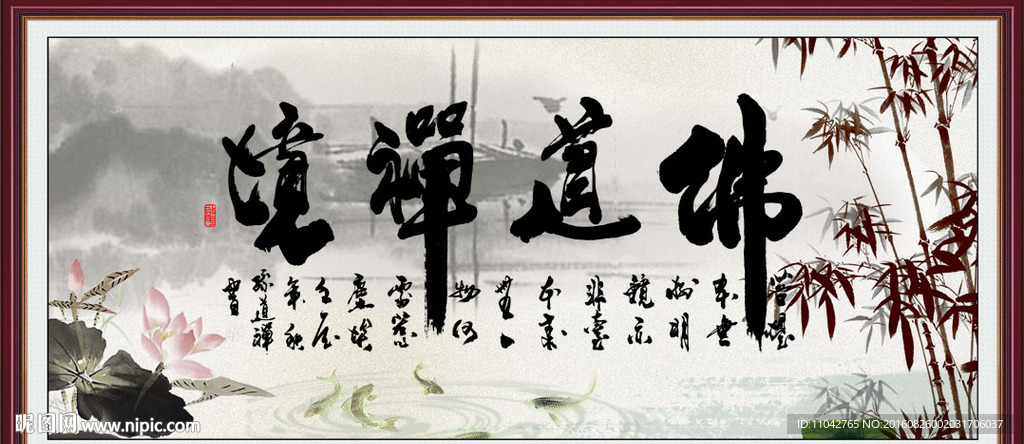 佛道禪境
菩提
本無
樹明
鏡亦
非臺
本來
無一
物何
處惹
塵埃
壬辰
年秋
道禪
書
昵图网 www.nipic.com
ID:11042765 NO:20160826002031706037